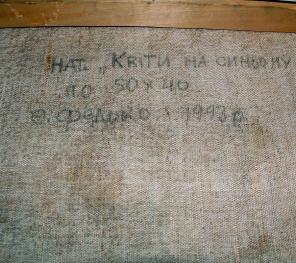 НАТ. „КВІТИ НА СИНЬОМУ
ПО 50X40
Федько 1993 р.